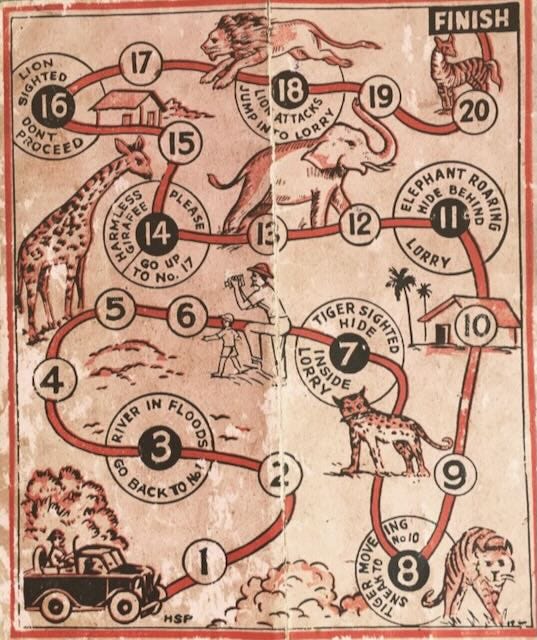 FINISH
20
19
LION ATTACKS
18
JUMP INTO LORRY
17
LION
SIGHTED
16
DONT
PROCEED
15
HARMLESS
GIRAFEE
14
PLEASE
GO UP
TO No. 17
13
12
ELEPHANT ROARING
HIDE BEHIND
11
LORRY
10
5
6
TIGER SIGHTED
HIDE
7
INSIDE
LORRY
4
RIVER IN FLOODS
3
GO BACK TO No 1
2
9
TIGER MOVEING
SNEAK TO No 10
8
1
HSP